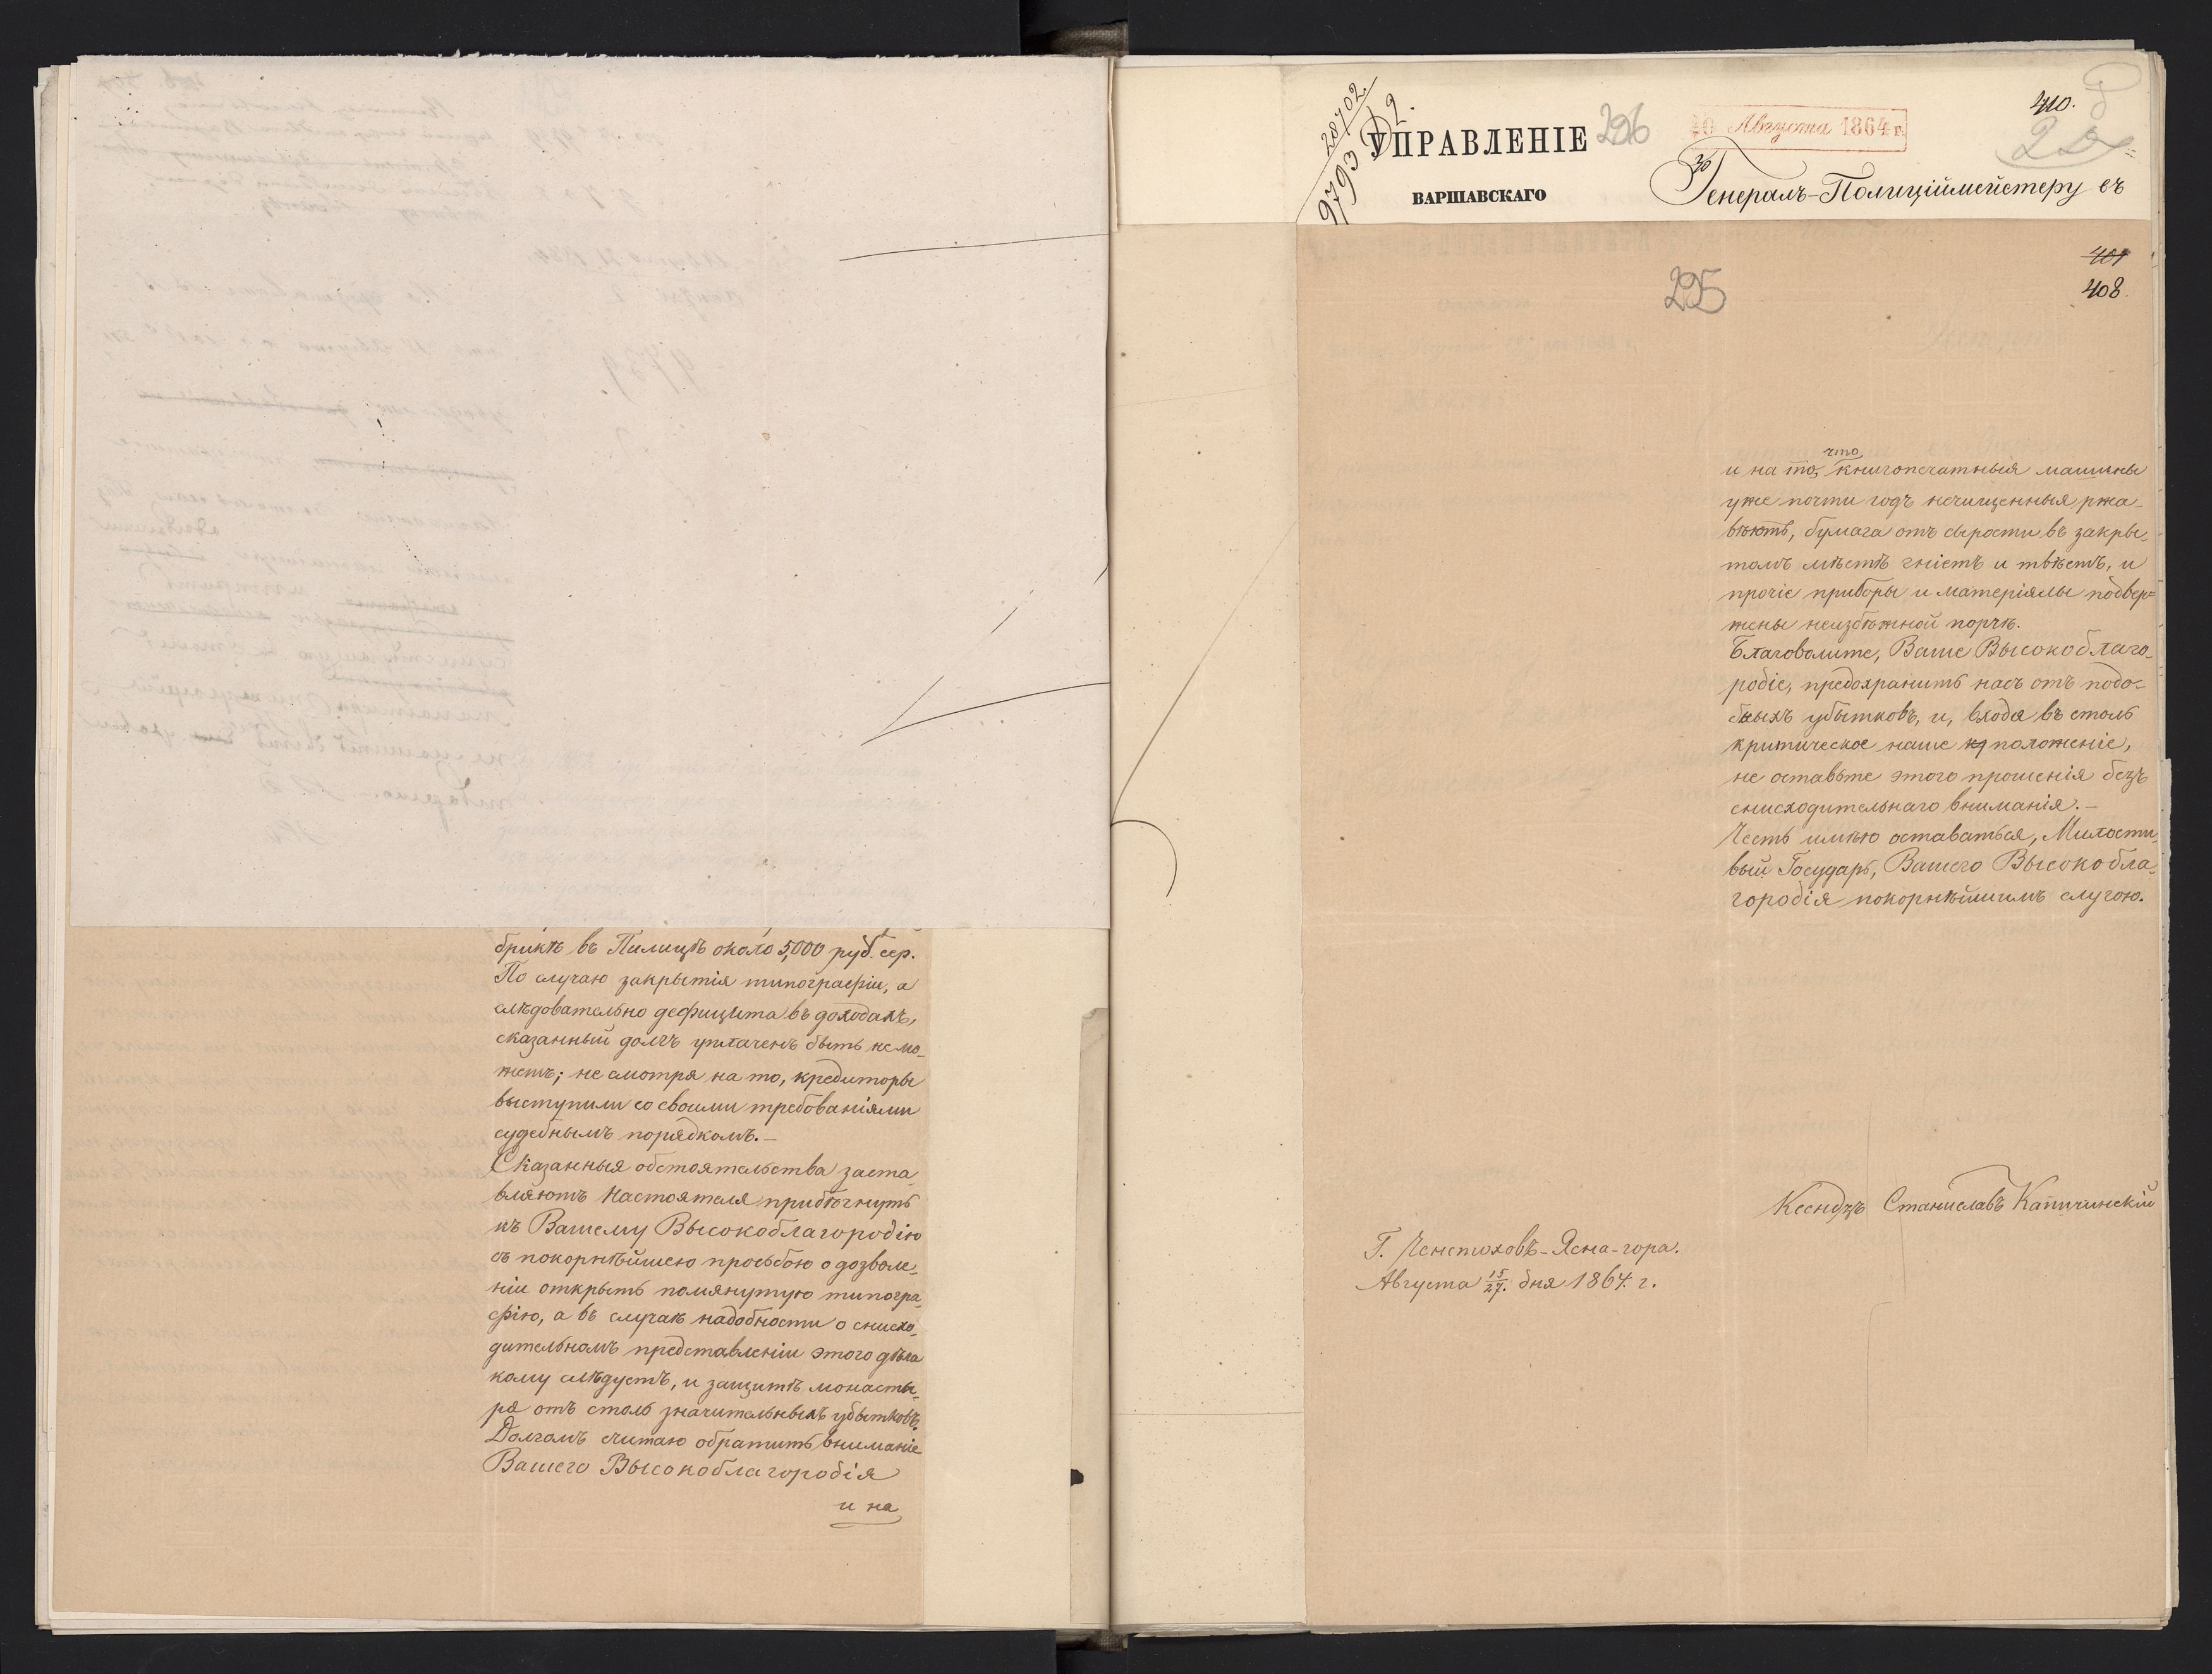 брикѣ въ Пилицѣ около 5,000 руб. сер.
По случаю закрытія типографіи, а
слѣдовательно дефицита въ доходахъ,
сказанный долгъ уплаченъ быть не мо-
жетъ; не смотря на то, кредиторы
выступили со своими требованіями
судебнымъ порядкомъ.—
Сказанныя обстоятельства заста-
вляютъ Настоятеля прибѣгнуть
къ Вашему Высокоблагородію
съ покорнѣйшею просьбою о дозволе-
ніи открыть помянутую типогра-
фію, а въ случаѣ надобности о снисхо-
дительномъ представленіи этого дѣла
кому слѣдуетъ, и защитѣ монасты-
ря отъ столь значительныхъ убытковъ.
Долгомъ считаю обратить вниманіе
Вашего Высокоблагородія
и на
28702
9793
УПРАВЛЕНІЕ
296
Августа 1864 г.
410.
ВАРШАВСКАГО
Генералъ-Полиціймейстеру съ
407
408
295
что
и на то, книгопечатныя машины
уже почти годъ нечищенныя ржа-
вѣютъ, бумага отъ сырости въ закры-
томъ мѣстѣ гніетъ и тлѣетъ, и
прочіе приборы и матеріялы подвер-
жены неизбѣжной порчѣ.
Благоволите, Ваше Высокоблаго-
родіе, предохранить насъ отъ подо-
бныхъ убытковъ, и, входя въ столь
критическое наше положеніе,
не оставьте этого прошенія безъ
снисходительнаго вниманія.—
Честь имѣю оставаться, Милости-
вый Государь, Вашего Высокобла-
городія покорнѣйшимъ слугою.
Ксендзъ Станиславъ
Г. Ченстоховъ-Ясна-гора.
Августа 15/27. дня 1864. г.